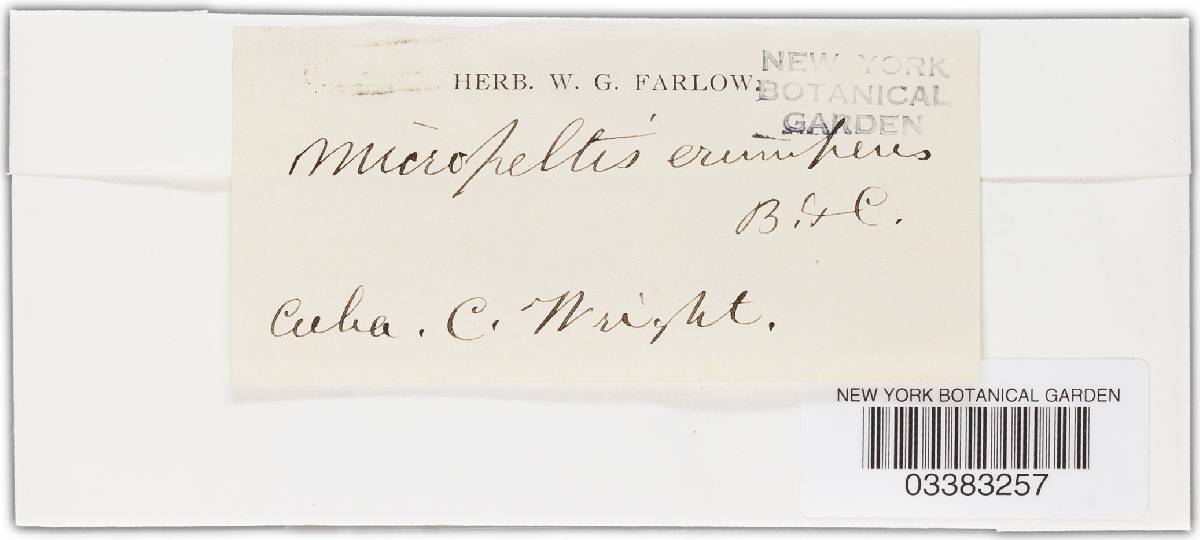 HERB. W. G. FARLOW.
NEW YORK
BOTANICAL
GARDEN
Micropeltis erumpens
B. & C.
Cuba. C. Wright.
NEW YORK BOTANICAL GARDEN
03383257